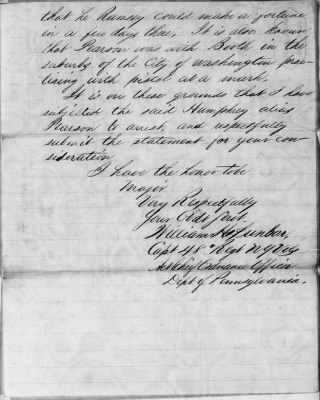 that Le Rumsey could make a fortune
in a few days there. It is also known
that Pearson was with Booth in the
suburbs of the City of Washington prac-
tising with pistol at a mark.
It is on these grounds that I have
subjected the said Hamphrey alias
Pearson to arrest, and respectfully
submit the statement for your con-
sideration
I have the honor to be
Major
Very Respectfully
Your Obdt Servt.
William H
Capt 48" Regt N.Y. Vols
Ordnance Officer
Dept of Pennsylvania.